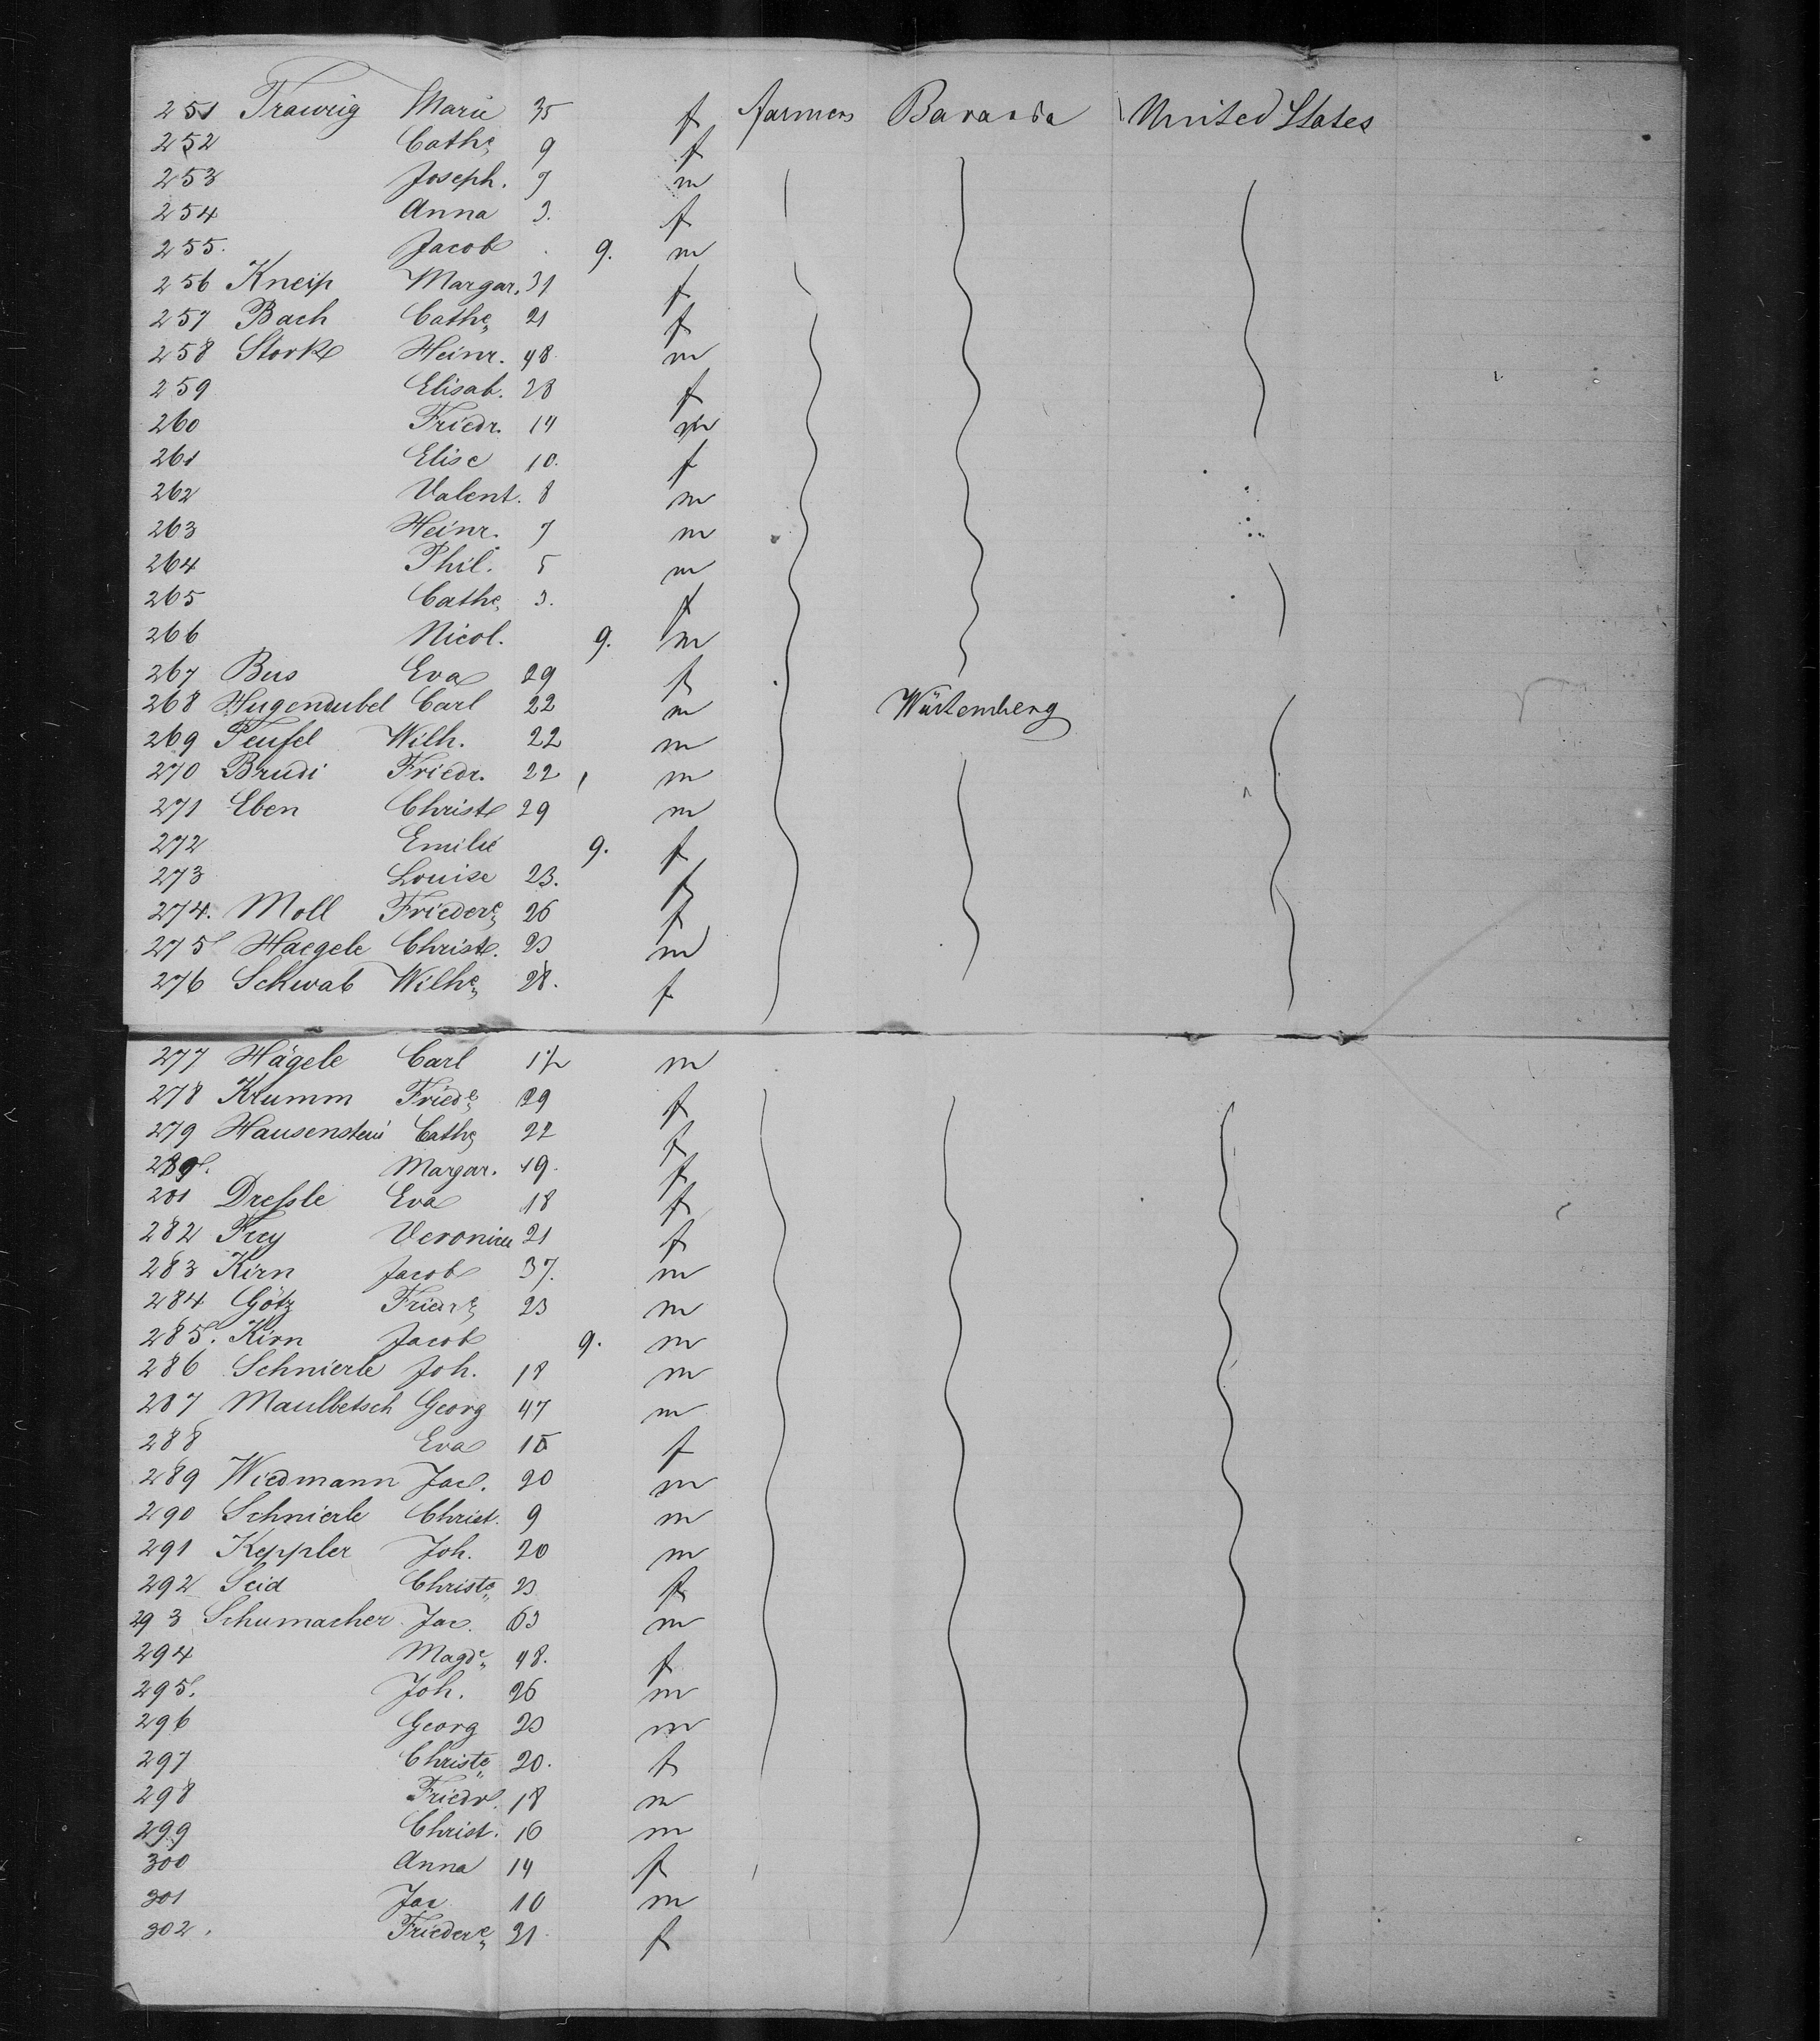 251 Trawrig Marie 35 f farmers Bavaria United States
252 Cathe 9 f
253 Joseph. 7 m
254 Anna 3. f
255. Jacob 9. m
256 Kneip Margar. 31 f
257 Bach Cathe 21 f
258 Stork Heinr. 48 m
259 Elisab. 28 f
260 Friedr. 14 m
261 Elise 10. f
262 Valent. 8 m
263 Heinr. 7 m
264 Phil. 5 m
265 Cathe 3. f
266 Nicol. 9. m
267 Bus Eva 29 f
268 Hugendubel Carl 22 m Würtemberg
269 Teufel Wilh. 22 m
270 Brudi Friedr. 22 m
271 Eben Christ 29 m
272 Emilie 9. f
273 Louise 23. f
274. Moll Friedere 26 f
275 Haegele Christ. 23 m
276 Schwab Wilhe 28. f
277 Hägele Carl m
278 Krumm Friede 29 f
279 Hausenstein Cathe 22 f
280. Margar. 19. f
281 Dreſsle Eva 18 f
282 Frey Veronica 21 f
283 Kirn Jacob 37. m
284 Götz Friedre 23 m
285. Kirn Jacob 9. m
286 Schnierle Joh. 18 m
287 Maulbetsch Georg 47 m
288 Eva 15 f
289 Wiedmann Jac. 20 m
290 Schnierle Christ. 9 m
291 Keppler Joh. 20 m
292 Seid Christe 23 f
293 Schumacher Jac. 63 m
294 Magde 48. f
295. Joh. 26 m
296 Georg 23 m
297 Christe 20. f
298 Friedr. 18 m
299 Christ. 16 m
300 Anna 14 f
301 Jac 10 m
302. Friedere 21 f